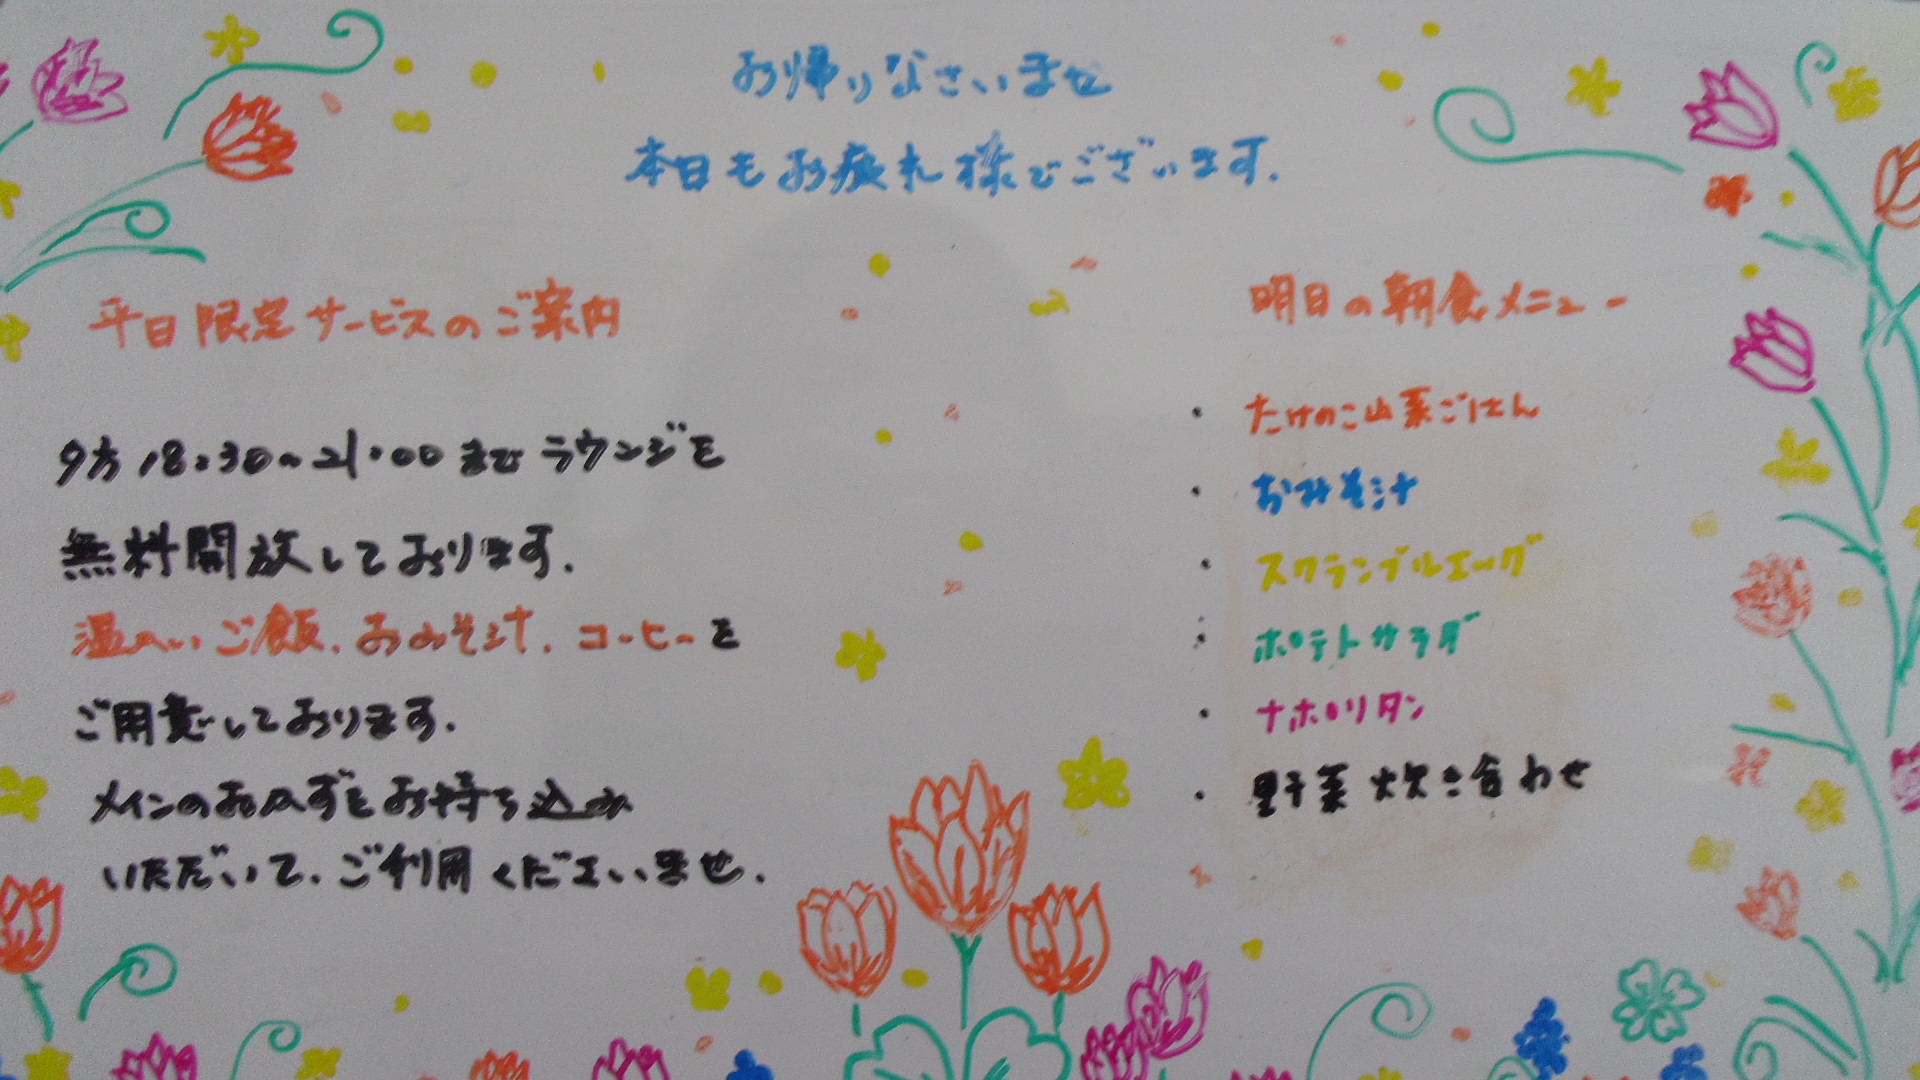 お帰りなさいませ
本日もお疲れ様でございます.
平日限定サービスのご案内
夕方18:30~21:00までラウンジを
無料開放しております.
温かいご飯.おみそ汁.コーヒーを
ご用意しております.
メインのおかずをお持ち込み
いただいて.ご利用くださいませ.
明日の朝食メニュー
・たけのこ山菜ごはん
・おみそ汁
・スクランブルエッグ
・ポテトサラダ
・ナポリタン
・野菜炊き合わせ